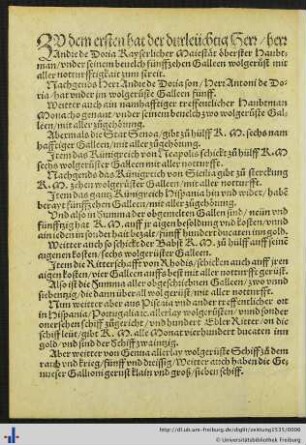 ZV dem ersten hat der durleüchtig Herr / herr
Andre de Doria Kayserlicher Maiestät öberster Haubt-
man / vnder seinem beuelch fünffzehen Galleen wolgerüst mit
aller notturfftigkait zum streit.
Nachgends Herr Andre de Doria son / Herr Antoni de Do-
ria hat vnder im wolgerüste Galleen fünff.
Weitter auch ain namhafftiger treffenlicher Haubtman
Monacho genant / vnder seinem beuelch zwo wolgerüste Gal-
leen / mit aller zügehörung.
Abermals die Stat Genoa / gibt zů hülff K. M. sechs nam
hafftiger Galleen / mit aller zügehörung.
Item das Künigreich von Neapolis schickt zů hülff K. M
sechs wolgerüster Galleen mit aller notturfft.
Nachgends das Künigreich von Sicilia gibt zů sterckung
K. M. zehen wolgerüster Galleen / mit aller notturfft.
Item das gantz Künigreich Hispania hin vnd wider / habē
berayt fünffzehen Galleen / mit aller zügehörung.
Vnd also in Summa der obgemelten Galleen sind / nein vnd
fünfftzig hat K. M. auff jr aigen besoldung vnd kosten / vnnd
ain jedenn sonder hait bezalt / fünff hundert ducaten inn gold.
Weitter auch so schickt der Babst K. M. zů hülff auff seinē
aignen kosten / sechs wolgerüster Galleen.
Item die Ritterschafft von Rhodis / schicken auch auff jren
aigen kosten / vier Galleen auffs best mit aller notturfft gerüst.
Also ist die Summa aller obgeschriben Galleen / zwo vnnd
sibentzig / die dann überall wolgerüst / mit aller notturfft.
Nun weitter aber auß Piscaia vnd ander treffenlicher ort
in Hispania / Portugalia ec. allerlay wolgerüsten / vnnd sonder
onersehen schiff zůgericht / vnd hundert Edler Ritter / on die
schiff leut / gibt K. M. alle Monat vierhundert ducaten inn
gold / vnd sind der Schiff zwaintzig.
Aber weitter von Genua allerlay wolgerüste Schiff zů dem
raub vnd krieg / fünff vnd dreissig. Weitter auch haben die Ge-
nueser Gallioni gerust klain vnd groß / siben schiff.
http://digi.ub.uni-heidelberg.de/diglit/zeitung1535/0006
© Universitätsbibliothek Heidelberg